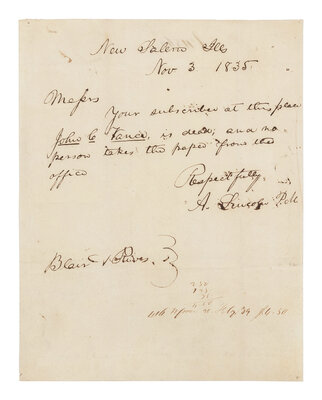 New Salem Ills
Nov 3 1835
Messrs
Your subscriber at this place
John C Vance, is dead, and no
person takes the paper from the
office
Respectfully,
A. Lincoln P.M
Blair & Rives